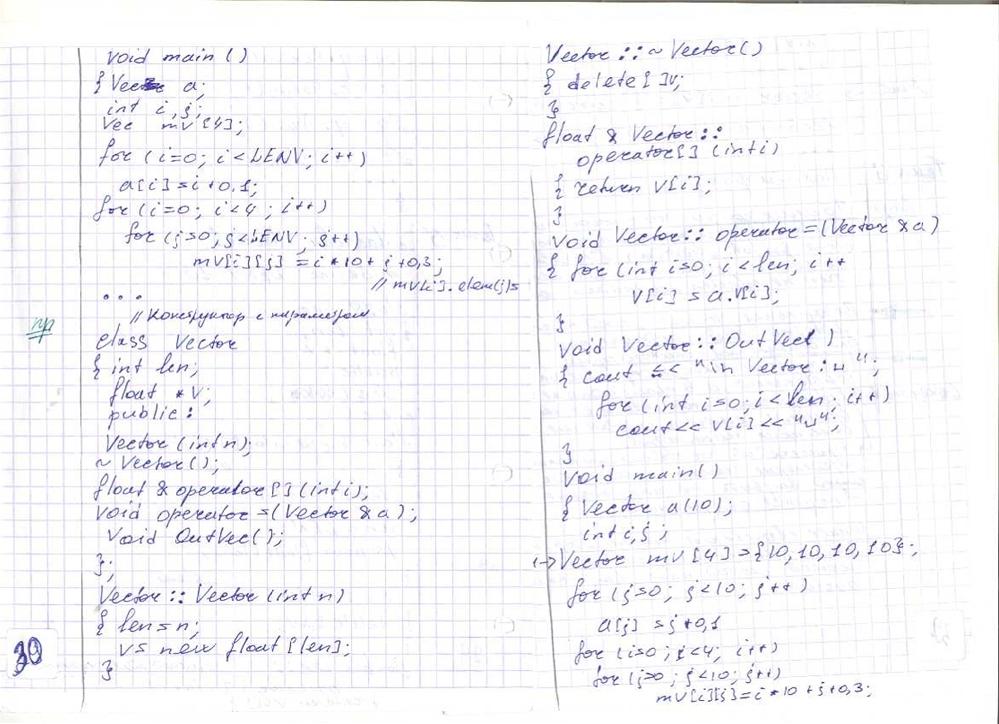 void main ()
{ Vec a;
int i, j;
Vec mv [4];
for (i=0; i<LENV; i++)
a[i]=i+0,1;
for (i=0; i<4; i++)
for (j=0; j<LENV; j++)
mv[i][j] = i*10+j+0,3;
// mv[i].elem(j)=
...
// Конструктор с параметром
пр
class Vector
{ int len;
float *v;
public:
Vector (int n);
~ Vector();
float & operator [] (int i);
void operator =(Vector & a);
void OutVec();
};
Vector :: Vector (int n)
{ len=n;
v= new float [len];
}
30
Vector :: ~ Vector ()
{ delete[]v;
}
float & Vector ::
operator[] (int i)
{ return v[i];
}
void Vector:: operator=(Vector & a)
{ for (int i=0; i<len; i++
v[i] = a.v[i];
}
void Vector:: OutVec( )
{ cout << "in Vector: ␣";
for (int i=0; i<len; i++)
cout<< v[i]<< "␣";
}
void main()
{ Vector a(10);
int i,j;
Vector mv [4]={10,10,10,10};
for (j=0; j<10; j++)
a[j] =j+0,1
for (i=0; i<4; i++)
for (j=0; j<10; j++)
mv[i][j]=i*10+j+0,3;